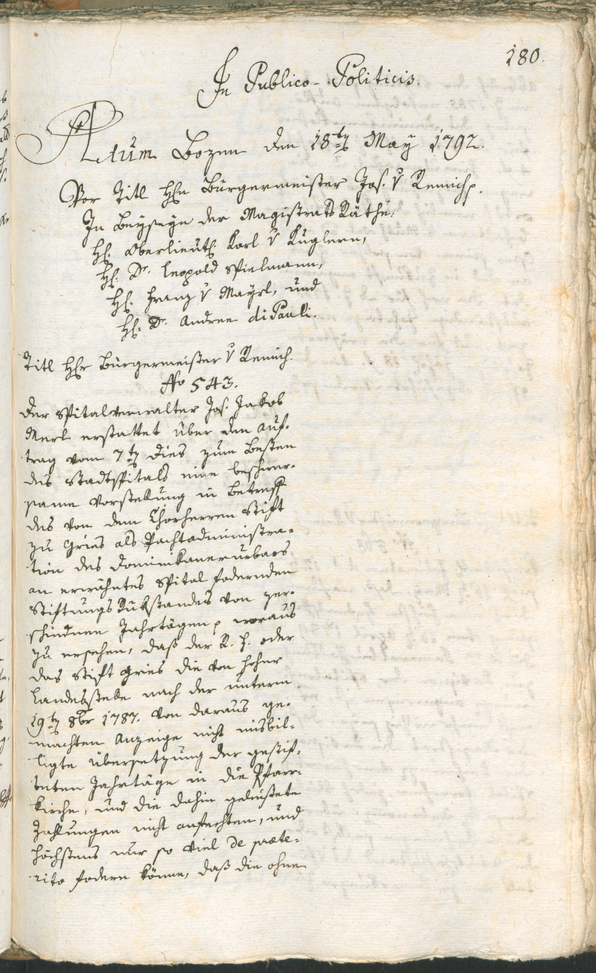 180.
In Publico-Politicis.
Actum Bozen den 18ten May 1792.
Vor Titl Hhn Bürgermeister Jos. v Remich p.
In Beyseyn der Magistrats Räthe,
Hh. Oberlieut. Karl v Kuglern,
Hh. Dr. Leopold Spielmann,
Hh. Franz v Mayrl, und
Hh. Dr. Andree di Pauli.
Titl Hhr Bürgermeister v Remich.
No 543.
Der Spitalverwalter Jos. Jakob
Merl erstattet über den Auf-
trag vom 7ten dies zum Besten
des Stadtspitals eine beschwer-
same Vorstellung in Betreff
des von dem Chorherren Stift
zu Gries als Pachtadministra-
tion des Dominikanerurbars
an erwehntes Spital fodernden
Stiftungs Rükstandes von ver-
schiednen Jahrtägen p woraus
zu ersehen, daß der K. F. oder
das Stift Gries die von hoher
Landesstelle nach der unterm
19ten 8br 1787. von daraus ge-
machten Anzeige nicht misbil-
ligte Übersetzung der gestif-
teten Jahrtäge in die Pfarr-
kirche, und die dahin geleistete
Zahlungen nicht anfechten, und
höchstens nur so viel de praete-
rito fodern könne, daß die ohne